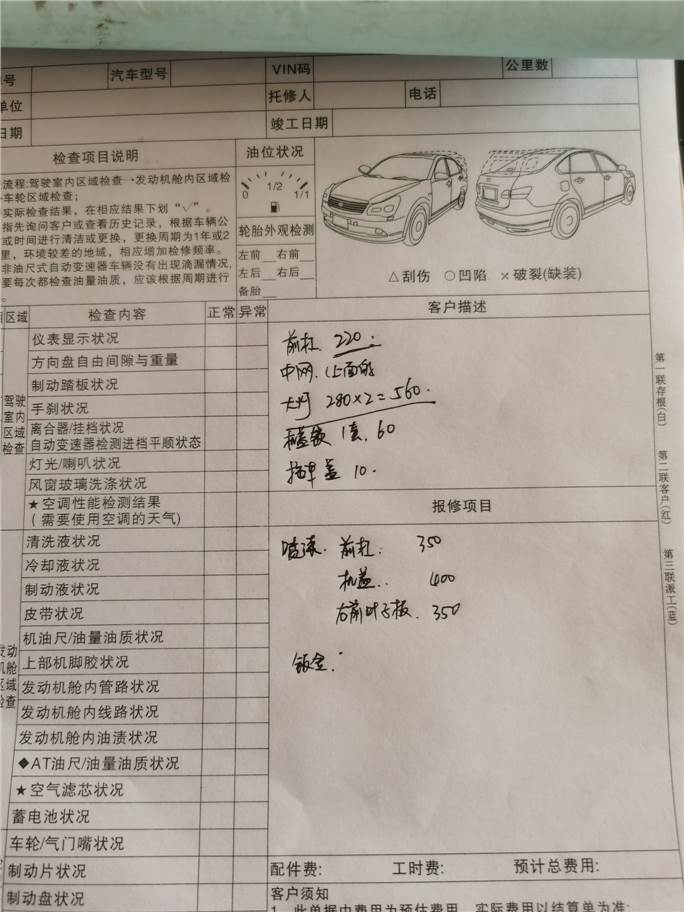 号
汽车型号
VIN码
公里数
单位
托修人
电话
日期
竣工日期
检查项目说明
流程:驾驶室内区域检查→发动机舱内区域检
车轮区域检查;
实际检查结果，在相应结果下划“√”。
指先询问客户或查看历史记录，根据车辆公
或时间进行清洁或更换，更换周期为1年或2
里，环境较差的地域，相应增加检修频率。
非油尺式自动变速器车辆没有出现滴漏情况,
要每次都检查油量油质，应该根据周期进行
油位状况
0 1/2 1/1
轮胎外观检测
左前__右前__
左后__右后__
备胎__
△刮伤 ○凹陷 ×破裂(缺装)
区域
检查内容
正常
异常
客户描述
驾驶
室内
区域
检查
仪表显示状况
方向盘自由间隙与重量
制动踏板状况
手刹状况
离合器/挂档状况
自动变速器检测进档平顺状态
灯光/喇叭状况
风窗玻璃洗涤状况
★空调性能检测结果
(需要使用空调的天气)
前杠 220.
中网.(上面的
大灯 280×2=560.
1套. 60
拖车盖 10.
报修项目
喷漆. 前杠. 350
机盖.. 400
右前叶子板. 350
钣金.
发动
机舱
区域
检查
清洗液状况
冷却液状况
制动液状况
皮带状况
机油尺/油量油质状况
上部机脚胶状况
发动机舱内管路状况
发动机舱内线路状况
发动机舱内油渍状况
◆AT油尺/油量油质状况
★空气滤芯状况
蓄电池状况
车轮/气门嘴状况
制动片状况
制动盘状况
配件费:
工时费:
预计总费用:
客户须知
1、此单据中费用为预估费用，实际费用以结算单为准;
第一联存根(白)
第二联客户(红)
第三联派工(蓝)